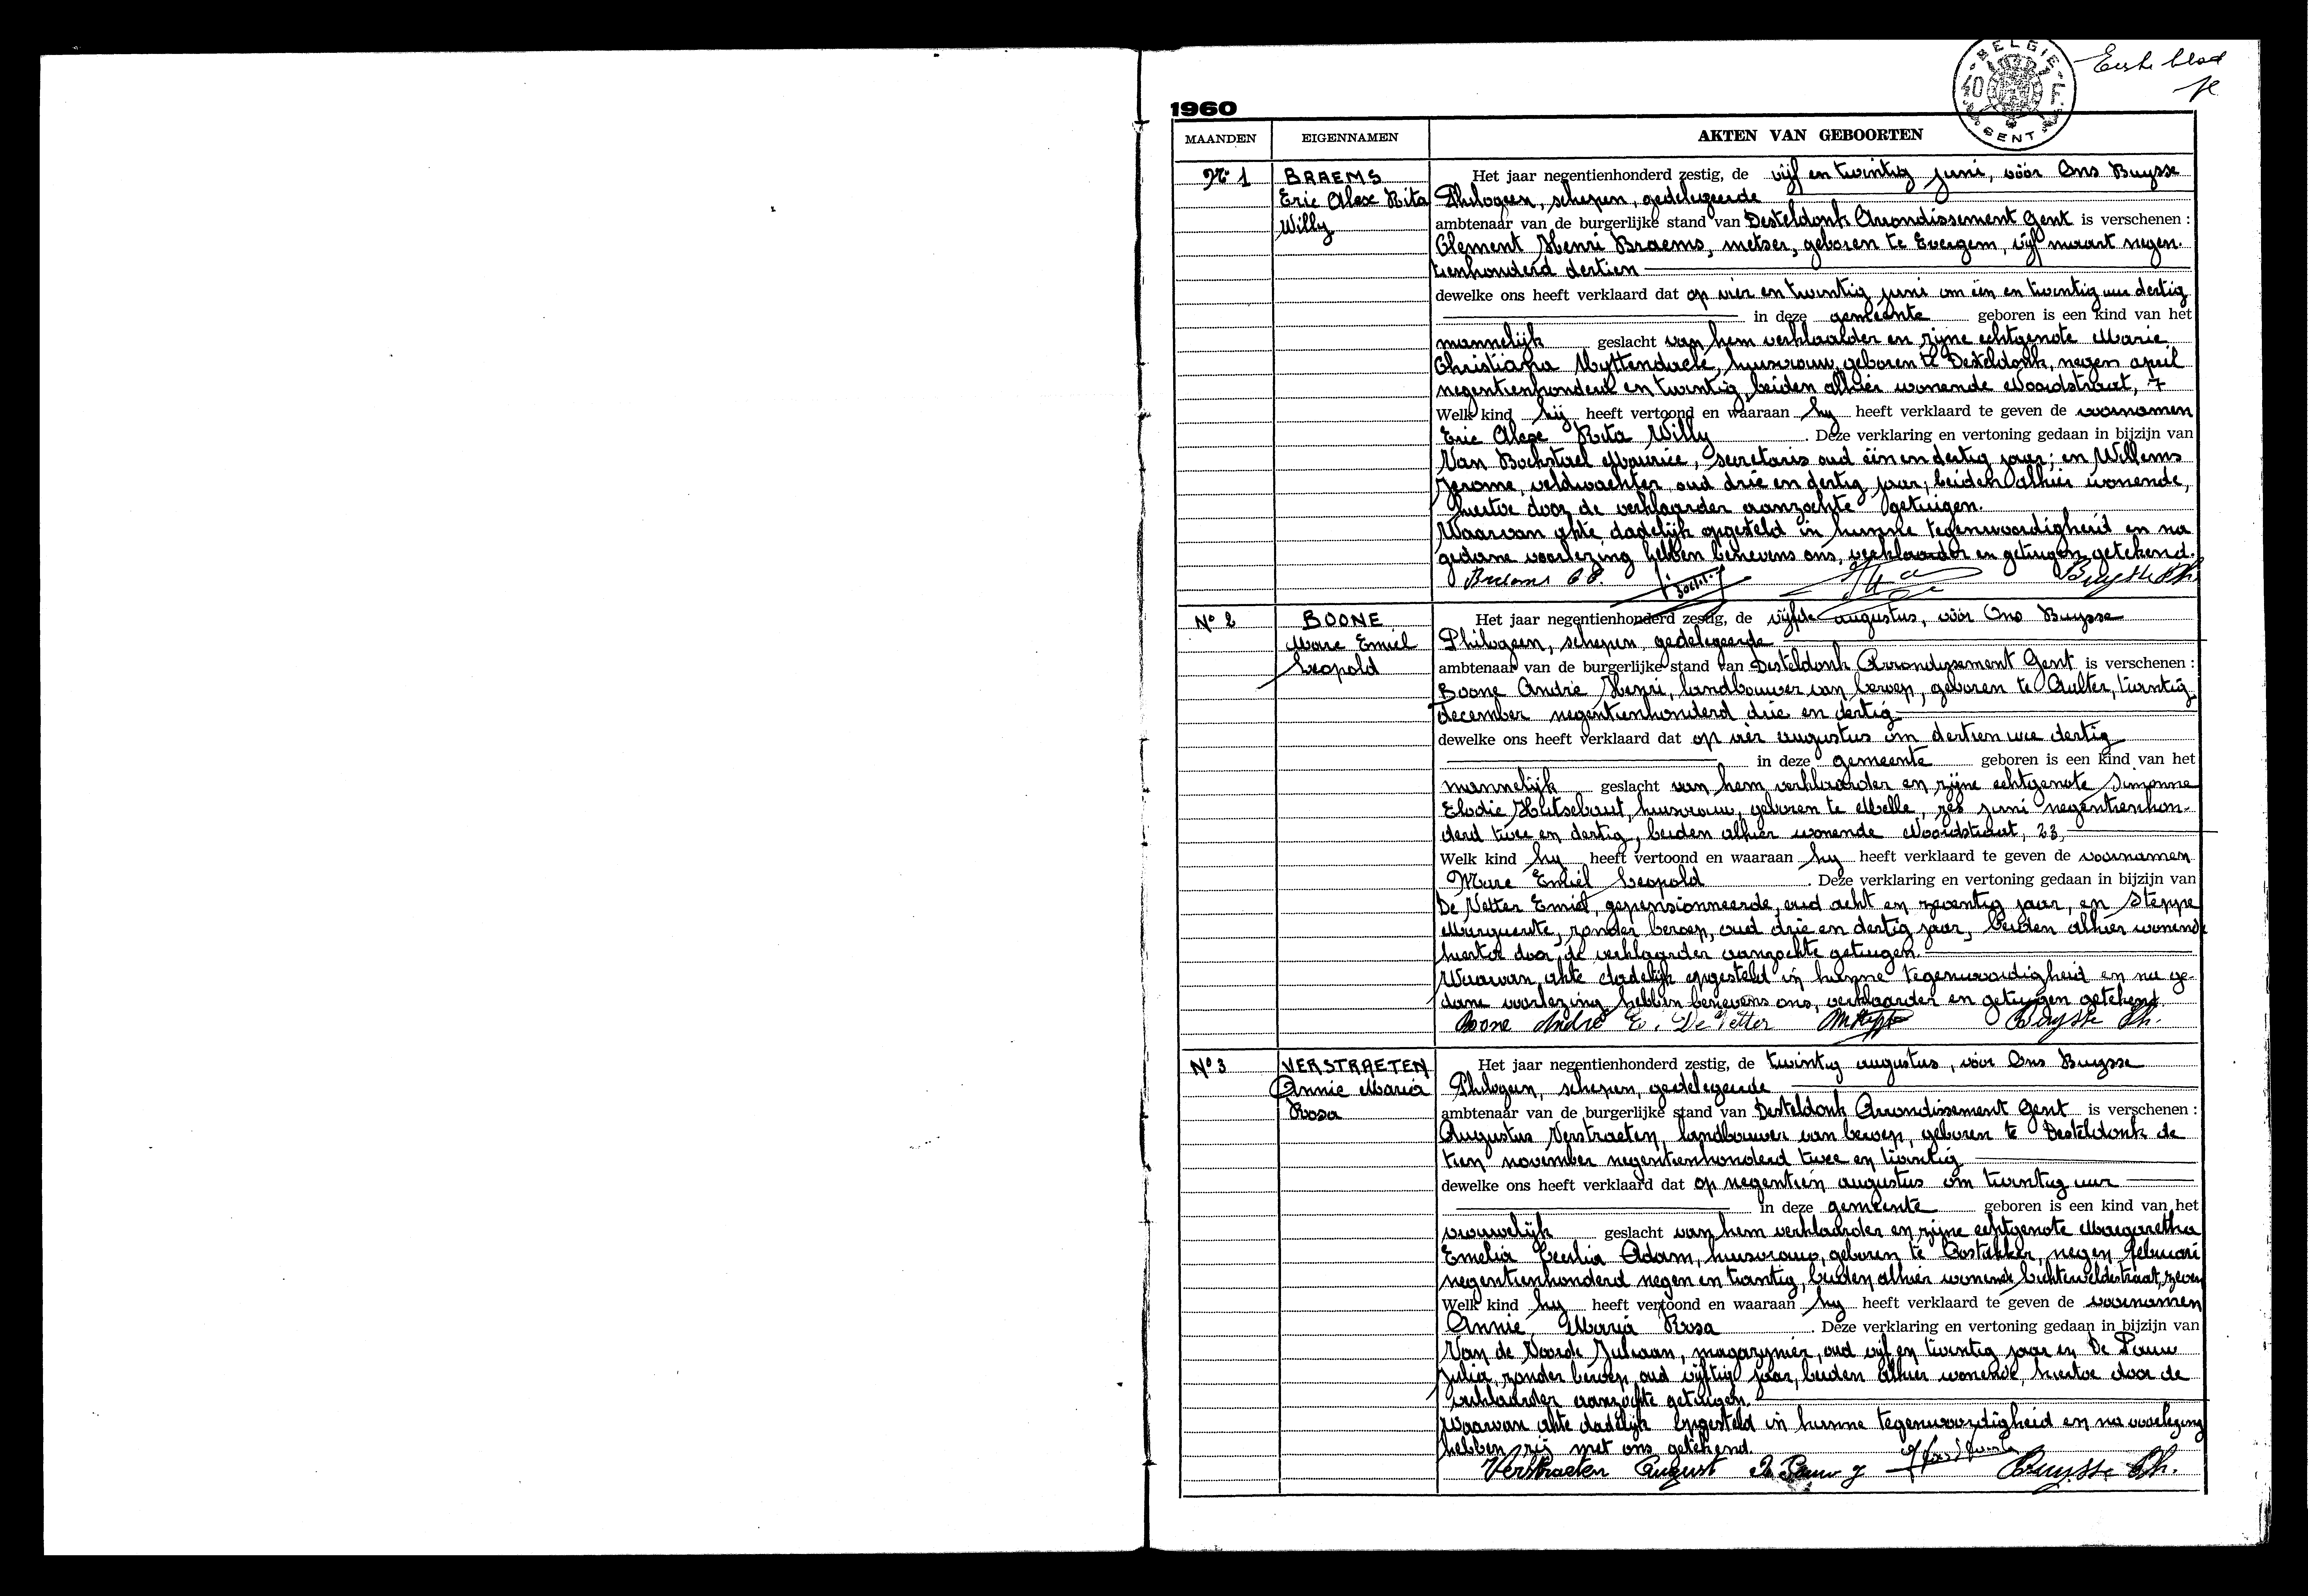 BELGIE
40 F.
GENT
Eerste blad
1960
MAANDEN EIGENNAMEN AKTEN VAN GEBOORTEN
Nr 1 BRAEMS Het jaar negentienhonderd zestig, de vijf en twintig juni, vóór Ons Buysse
Eric Alex Rita Philogeen, schepen, gedelegeerde
Willy ambtenaar van de burgerlijke stand van Desteldonk Arrondissement Gent is verschenen :
Clement Henri Braems, metser, geboren te Evergem, vijf maart negen-
tienhonderd dertien
dewelke ons heeft verklaard dat op vier en twintig juni om één en twintig uur dertig
in deze gemeente geboren is een kind van het
mannelijk geslacht van hem verklaarder en zijne echtgenote Marie
Christiana Uyttendaele, huisvrouw, geboren te Desteldonk, negen april
negentienhonderd en twintig, beiden alhier wonende Noordstraat, 7
Welk kind hij heeft vertoond en waaraan hy heeft verklaard te geven de voornamen
Eric Alex Rita Willy . Deze verklaring en vertoning gedaan in bijzijn van
Van Bockstael Maurice, secretaris oud één en dertig jaar; en Willems
Jerome, veldwachter oud drie en dertig jaar, beiden alhier wonende,
hiertoe door de verklaarder aanzochte getuigen.
Waarvan akte dadelijk opgesteld in hunne tegenwoordigheid en na
gedane voorlezing hebben benevens ons, verklaarder en getuigen getekend.
Braems Buysse Ph.
No 2 BOONE Het jaar negentienhonderd zestig, de vijfde augustus, vóór Ons Buysse
Marc Emiel Philogeen, schepen, gedelegeerde
Leopold ambtenaar van de burgerlijke stand van Desteldonk Arrondissement Gent is verschenen :
Boone André Henri, landbouwer van beroep, geboren te Aalter, twintig
december negentienhonderd drie en dertig
dewelke ons heeft verklaard dat op vier augustus om dertien uur dertig
in deze gemeente geboren is een kind van het
mannelijk geslacht van hem verklaarder en zijne echtgenote Simonne
Elodie Hutsebaut, huisvrouw, geboren te Melle, zes juni negentienhon-
derd twee en dertig, beiden alhier wonende Noordstraat, 23,
Welk kind hy heeft vertoond en waaraan hy heeft verklaard te geven de voornamen
Marc Emiel Leopold . Deze verklaring en vertoning gedaan in bijzijn van
De Vetter Emiel, gepensionneerde, oud acht en zeventig jaar, en Steppe
Marguerite, zonder beroep, oud drie en dertig jaar, beiden alhier wonende
hiertoe door de verklaarder aanzochte getuigen.
Waarvan akte dadelijk opgesteld in hunne tegenwoordigheid en na ge-
dane voorlezing hebben benevens ons, verklaarder en getuigen getekend.
Boone André E. De Vetter Buysse Ph.
No 3 VERSTRAETEN Het jaar negentienhonderd zestig, de twintig augustus, vóór Ons Buysse
Annie Maria Philogeen, schepen, gedelegeerde
Rosa ambtenaar van de burgerlijke stand van Desteldonk Arrondissement Gent is verschenen :
Augustus Verstraeten, landbouwer van beroep, geboren te Desteldonk de
tien november negentienhonderd twee en twintig
dewelke ons heeft verklaard dat op negentien augustus om twintig uur
in deze gemeente geboren is een kind van het
vrouwelijk geslacht van hem verklaarder en zijne echtgenote Margaretha
Emelia Cecilia Adam, huisvrouw, geboren te Oostakker, negen februari
negentienhonderd negen en twintig, beiden alhier wonende Lichtelveldestraat, zeven
Welk kind hy heeft vertoond en waaraan hy heeft verklaard te geven de voornamen
Annie Maria Rosa . Deze verklaring en vertoning gedaan in bijzijn van
Van de Voorde Juliaan, magazynier, oud vijf en twintig jaar en De Pauw
Julia, zonder beroep, oud vijftig jaar, beiden alhier wonende, hiertoe door de
verklaarder aanzochte getuigen.
Waarvan akte dadelijk opgesteld in hunne tegenwoordigheid en na voorlezing
hebben zij met ons getekend.
Verstraeten August De Pauw J Buysse Ph.